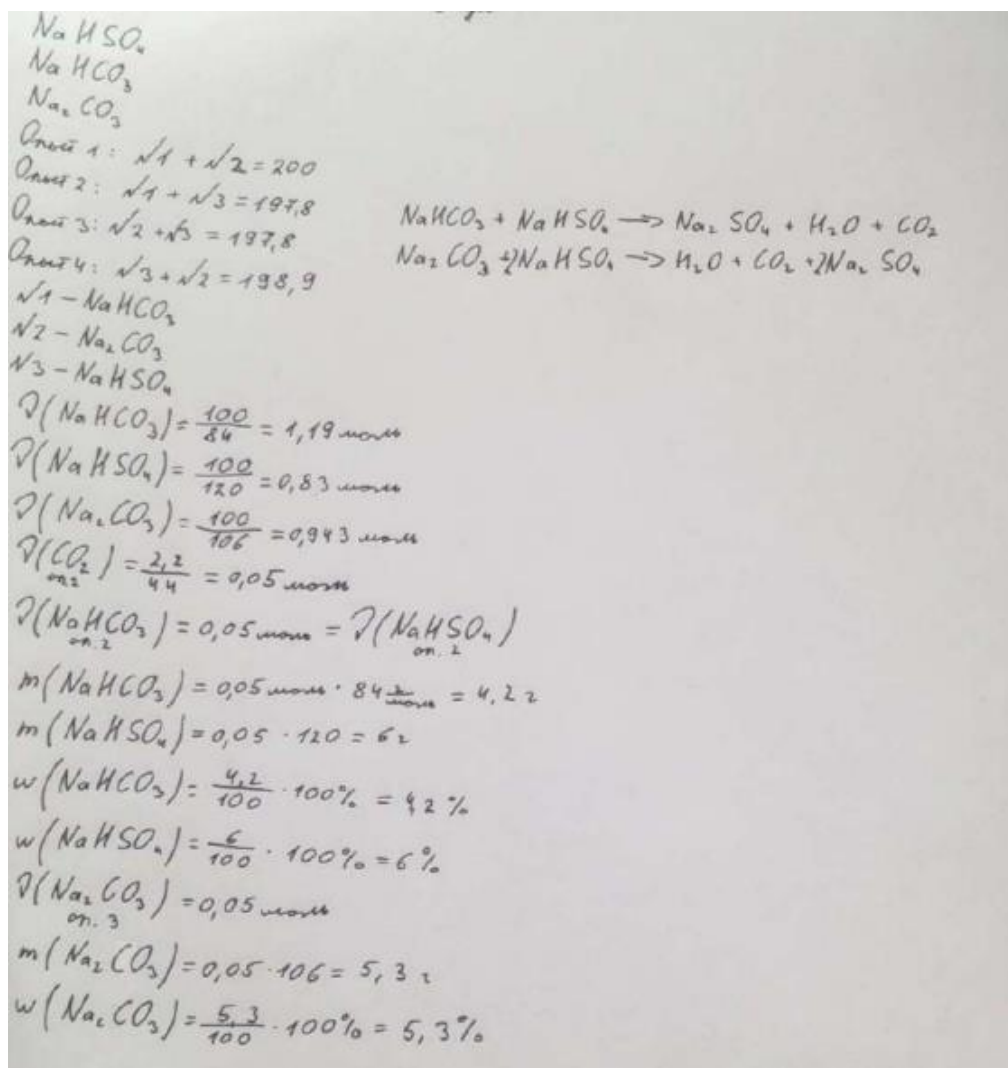 NaHSO₄
NaHCO₃
Na₂CO₃
Опыт 1: №1 + №2 = 200
Опыт 2: №1 + №3 = 197,8
Опыт 3: №2 + №3 = 197,8
Опыт 4: №3 + №2 = 198,9
NaHCO₃ + NaHSO₄ → Na₂SO₄ + H₂O + CO₂
Na₂CO₃ + 2NaHSO₄ → H₂O + CO₂ + 2Na₂SO₄
№1 – NaHCO₃
№2 – Na₂CO₃
№3 – NaHSO₄
ν(NaHCO₃) = 100/84 = 1,19 моль
ν(NaHSO₄) = 100/120 = 0,83 моль
ν(Na₂CO₃) = 100/106 = 0,943 моль
ν(CO₂) оп2 = 2,2/44 = 0,05 моль
ν(NaHCO₃) оп. 2 = 0,05 моль = ν(NaHSO₄) оп. 2
m(NaHCO₃) = 0,05 моль · 84 г/моль = 4,2 г
m(NaHSO₄) = 0,05 · 120 = 6 г
w(NaHCO₃) = 4,2/100 · 100% = 4,2%
w(NaHSO₄) = 6/100 · 100% = 6%
ν(Na₂CO₃) оп. 3 = 0,05 моль
m(Na₂CO₃) = 0,05 · 106 = 5,3 г
w(Na₂CO₃) = 5,3/100 · 100% = 5,3%